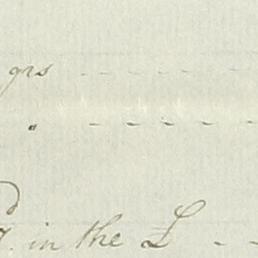 grs - - - -
" - - - - -
d. in the £ - -